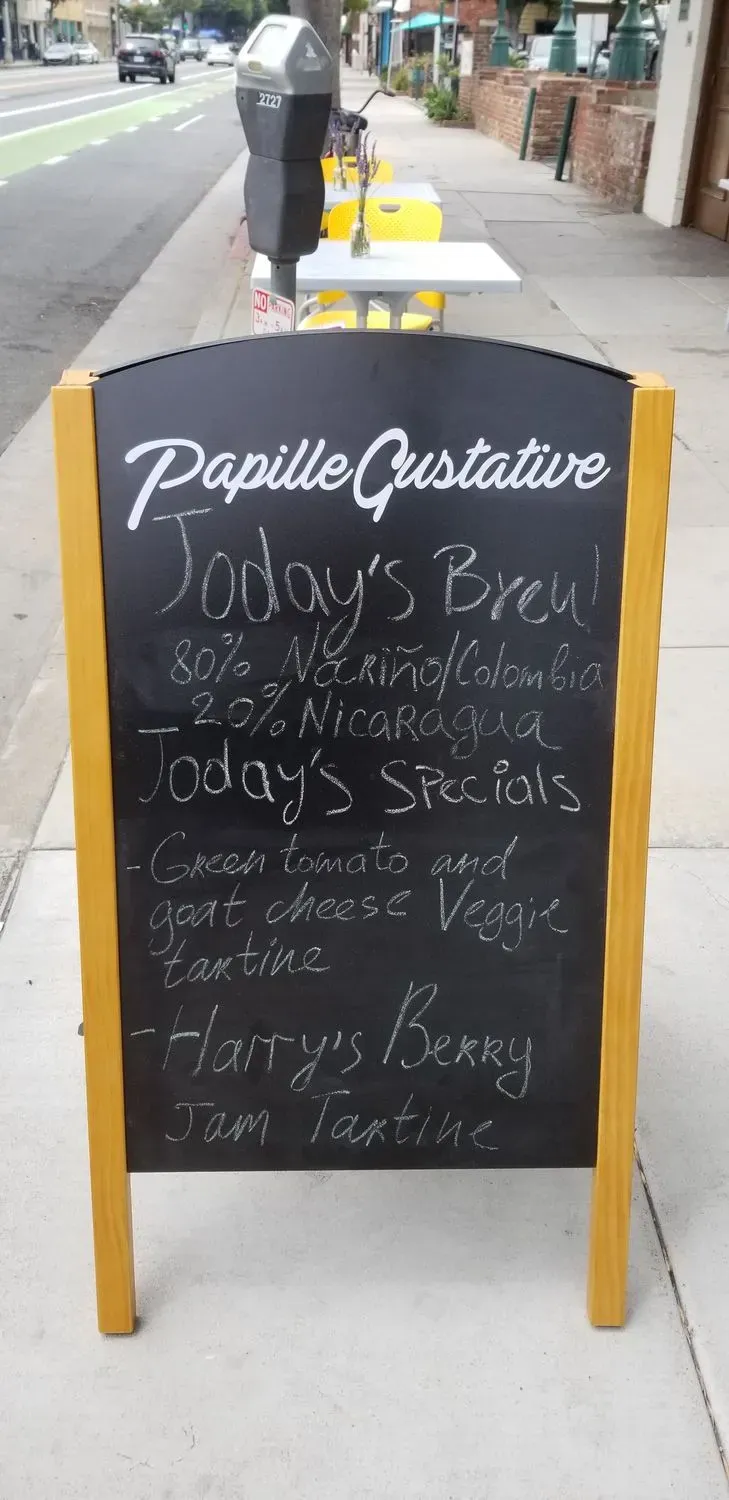 2727
NO PARKING
Papille Gustative
Today's Brew!
80% Nariño/Colombia
20% Nicaragua
Today's Specials
- Green tomato and
goat cheese Veggie
tartine
- Harry's Berry
Jam Tartine